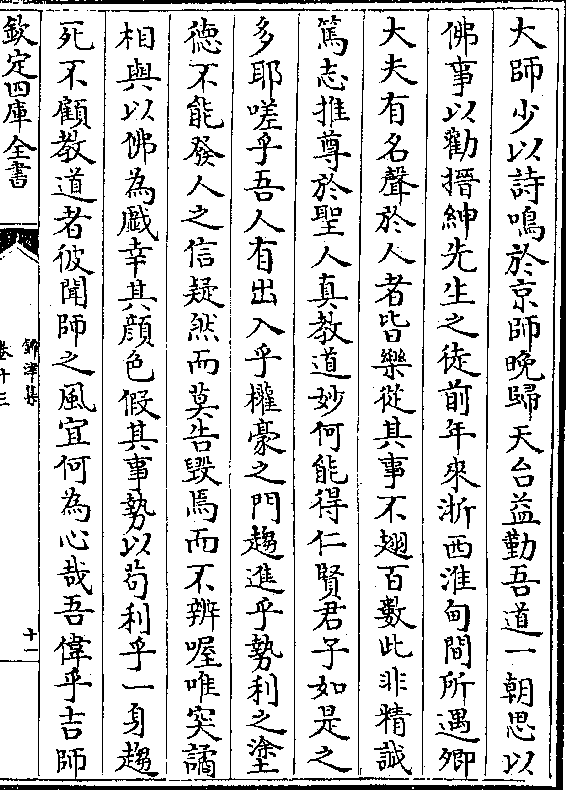 大師少以詩鳴於京師晚歸天台益勤吾道一朝思以
佛事以勸搢紳先生之徒前年來浙西淮甸間所遇卿
大夫有名聲於人者皆樂從其事不翅百數此非精誠
篤志推尊於聖人真教道妙何能得仁賢君子如是之
多耶嗟乎吾人有出入乎權豪之門趨進乎勢利之塗
德不能發人之信疑然而莫告毀焉而不辨喔唯突譎
相與以佛為戲幸其顔色假其事勢以苟利乎一身趨
死不顧教道者彼聞師之風宜何為心哉吾偉乎吉師
欽定四庫全書
鐔津集
卷十三
十一